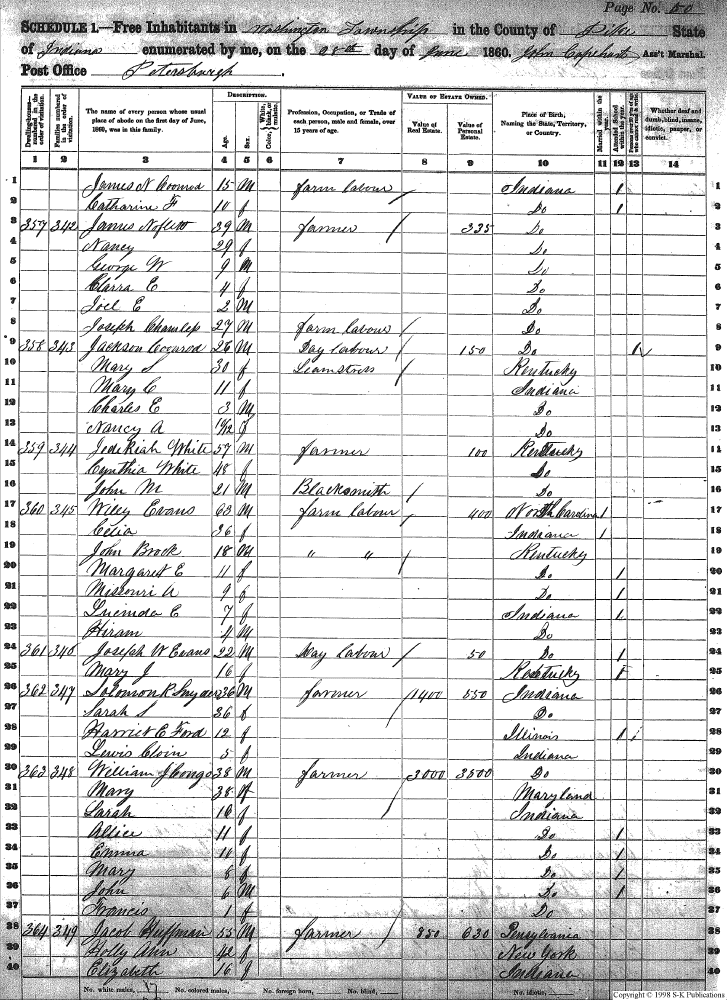 Page No. 50
SCHEDULE 1.—Free Inhabitants in Washington Township in the County of Pike State
of Indiana enumerated by me, on the 28th day of June 1860. John Capehart Ass't Marshal.
Post Office Petersburgh.
Dwelling-houses—numbered in the order of visitation.
Families numbered in the order of visitation.
The name of every person whose usual place of abode on the first day of June, 1860, was in this family.
DESCRIPTION.
Age.
Sex.
Color, White, black, or mulatto.
Profession, Occupation, or Trade of each person, male and female, over 15 years of age.
VALUE OF ESTATE OWNED.
Value of Real Estate.
Value of Personal Estate.
Place of Birth, Naming the State, Territory, or Country.
Married within the year.
Attended School within the year.
Whether deaf and dumb, blind, insane, idiotic, pauper, or convict.
1 2 3 4 5 6 7 8 9 10 11 12 13 14
1 James N 15 M farm labour / Indiana 1 1
2 Catharine F 10 f Do 1 2
3 357 342 James Noflett 39 M farmer / 335 Do 3
4 Nancy 29 f Do 4
5 George W 9 M Do 5
6 Clarra E 4 f Do 6
7 Joel E 2 M Do 7
8 Joseph 27 M farm labour / Do 8
9 358 343 Jackson 26 M Day labour / 150 Do 1 9
10 Mary S 30 f Seamstress / Kentucky 10
11 Mary C 11 f Indiana 11
12 Charles E 3 M Do 12
13 Nancy A f Do 13
14 359 344 Jedekiah White 57 M farmer 100 Kentucky 11
15 Cynthia White 48 f Do 15
16 John M 21 M Blacksmith / Do 16
17 360 345 Wiley Evans 63 M farm labour / 400 North Carolina 1 17
18 Celia 36 f Indiana 1 18
19 John Brock 18 M " " / Kentucky 19
20 Margaret E 11 f Do 1 20
21 Missouri A 9 f Do 1 21
22 Lucinda E 7 f Indiana 1 22
23 Hiram 4 M Do 23
24 361 346 Joseph W Evans 22 M Day labour / 50 Do 1 24
25 Mary J 16 f Kentucky 1 25
26 362 347 Solomon R Snyder 36 M farmer / 1400 550 Indiana 26
27 Sarah S 36 f Do 27
28 Harriet E Ford 12 f Illinois 1 28
29 Lewis 5 f Indiana 29
30 363 348 William J Congo 38 M farmer / 3000 3500 Do 30
31 Mary 38 f Maryland 31
32 Sarah 16 f Indiana 32
33 Allice 11 f Do 1 33
34 Emma 10 f Do 1 34
35 Mary 8 f Do 1 35
36 John 6 M Do 1 36
37 Francis 1 f Do 37
38 364 349 Jacob Huffman 55 M farmer / 850 630 Pensylvania 38
39 Holly Ann 42 f New York 39
40 Elizabeth 16 f Indiana 40
No. white males, 17 No. colored males, No. foreign born, No. blind, No. idiotic,
Copyright © 1998 S-K Publications